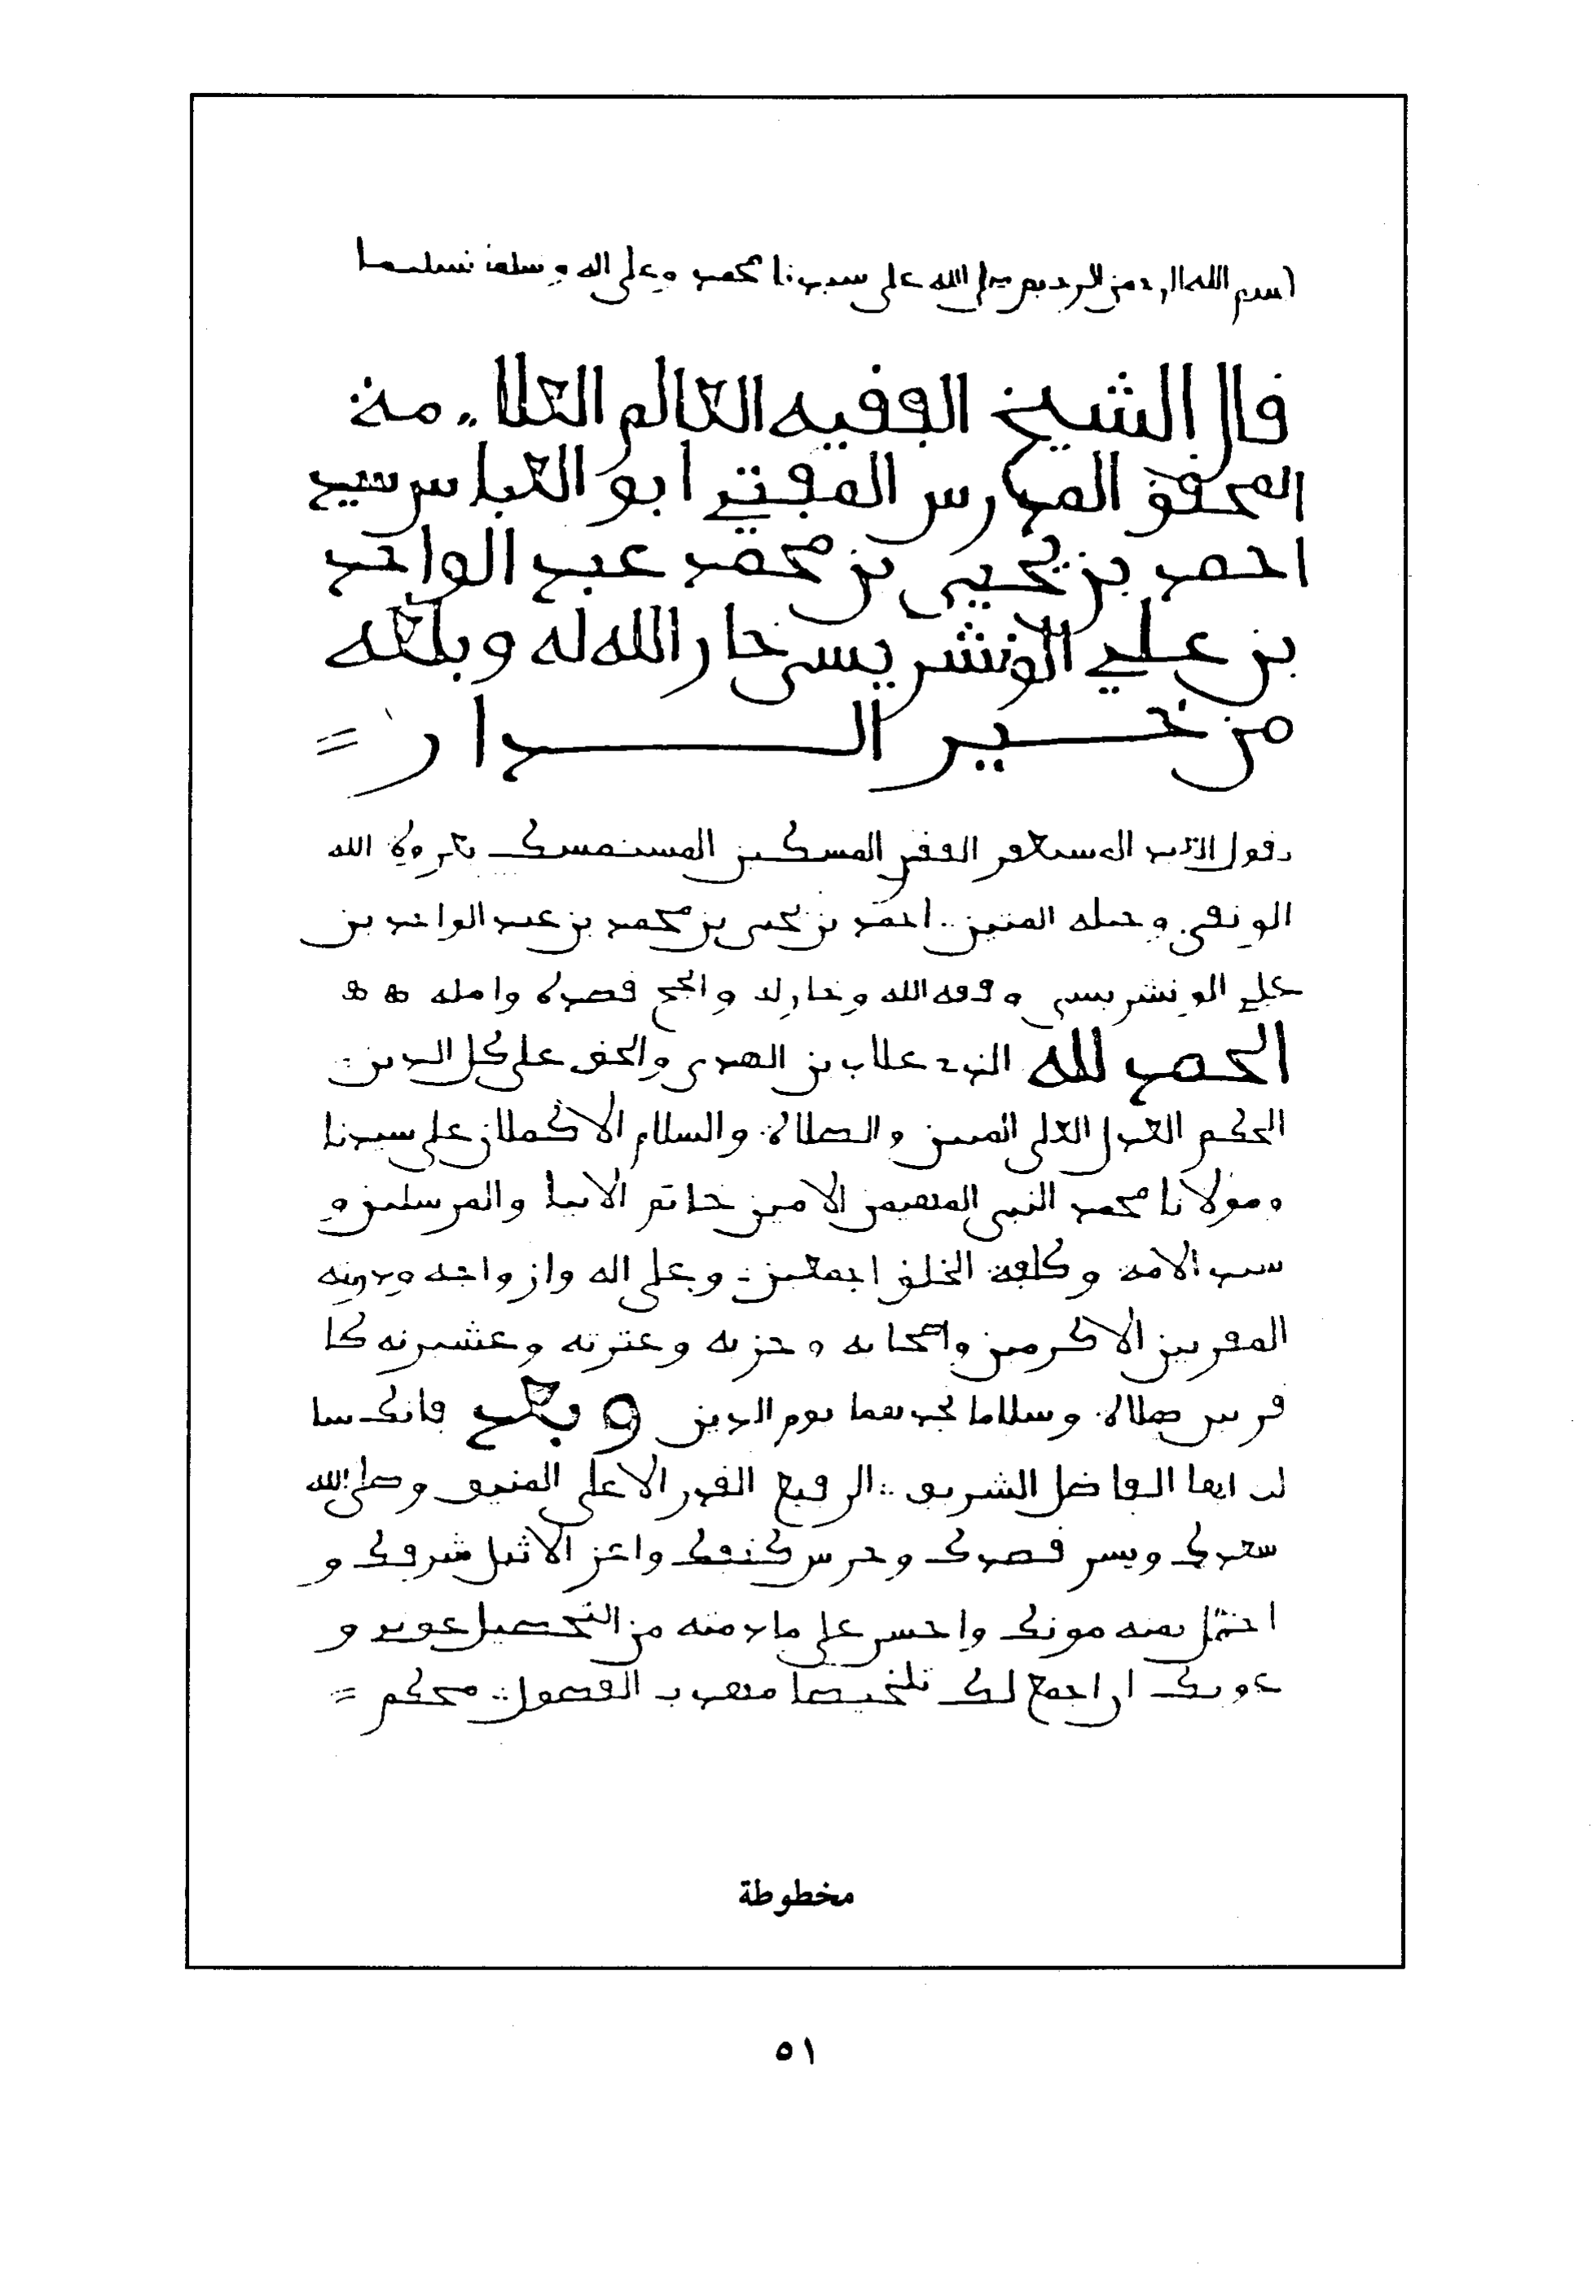 بسم الله الرحمن الرحيم صلى الله على سيدنا محمد وعلى اله وسلم تسليما
قال الشيخ الفقيه العالم العلامة
المحقق المدرس المفتي ابو العباس سيد
احمد بن يحيى بن محمد عبد الواحد
بن علي الونشريسي خار الله له وبلغه
من خير الدار
يقول العبد المستغفر الفقير المسكين المستمسك بعروة الله
الوثقى وحبله المتين احمد بن يحيى بن محمد بن عبد الواحد بن
علي الونشريسي وفقه الله وخار له وانجح قصده وامله
الحمد لله الهدى والحق على كل الدين
الحكم العدل العلي المبين والصلاة والسلام الاكملان على سيدنا
ومولانا محمد النبي المهيمن الامين خاتم الانبيا والمرسلين و
سيد الامة وكافة الخلق اجمعين وعلى اله وازواجه وذريته
المقربين الاكرمين واصحابه وحزبه وعترته وعشيرته
صلاة وسلاما يوم الدين وبعد فانك سا
لت ايها الفاضل الشريف الرفيع القدر الاعلى المنيف وصل الله
سعدك ويسر قصدك وحرس كنفك واعز الاثيل شرفك و
بمنه مونك واحسن على ما من التحصيل عونك و
ان اجمع لك تلخيصا مهذب الفصول محكم
مخطوطة
٥١